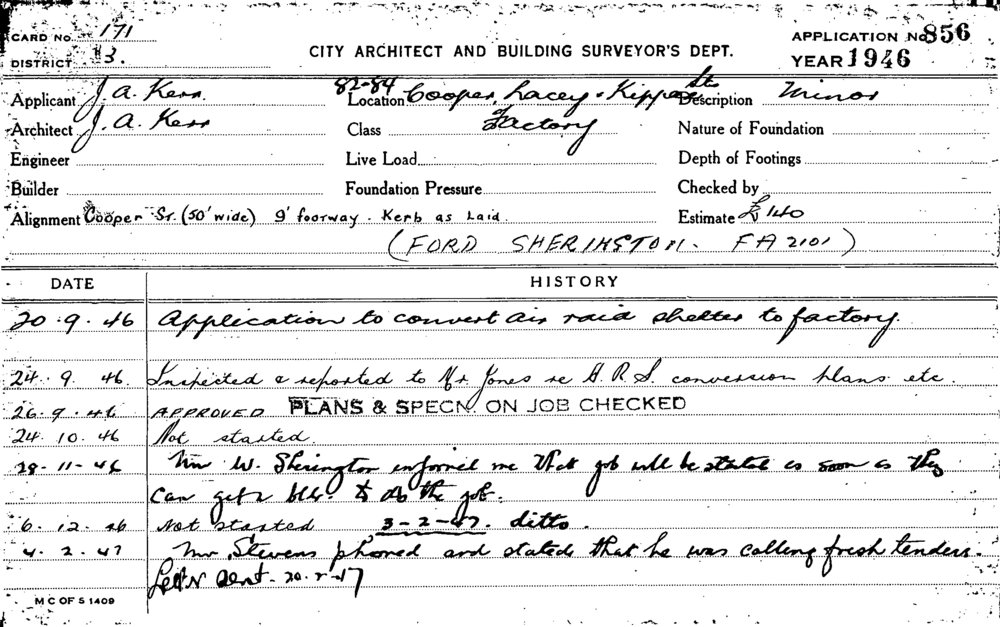 CARD No. 171
DISTRICT 3.
CITY ARCHITECT AND BUILDING SURVEYOR'S DEPT.
APPLICATION No. 856
YEAR 1946
Applicant J. A. Kerr.
82-84
Location Cooper, Lacey & Kippax Sts
Description Minor
Architect J. A. Kerr
Class Factory
Nature of Foundation
Engineer
Live Load
Depth of Footings
Builder
Foundation Pressure
Checked by
Alignment Cooper St. (50' wide) 9' footway. Kerb as laid.
Estimate £140
(FORD SHERINGTON. FA 2101)
DATE HISTORY
20.9.46 Application to convert air raid shelter to factory.
24.9.46. Inspected & reported to Mr Jones re A.R.S. conversion plans etc.
26.9.46 APPROVED PLANS & SPECN. ON JOB CHECKED
24.10.46 Not started.
28-11-46 Mr W. Sherington informed me that job will be started as soon as they
can get a bldr. to do the job.
6.12.46 Not started 3-2-47. ditto.
4.2.47 Mr Stevens phoned and stated that he was calling fresh tenders.
sent 20-2-47
M C OF S 1409